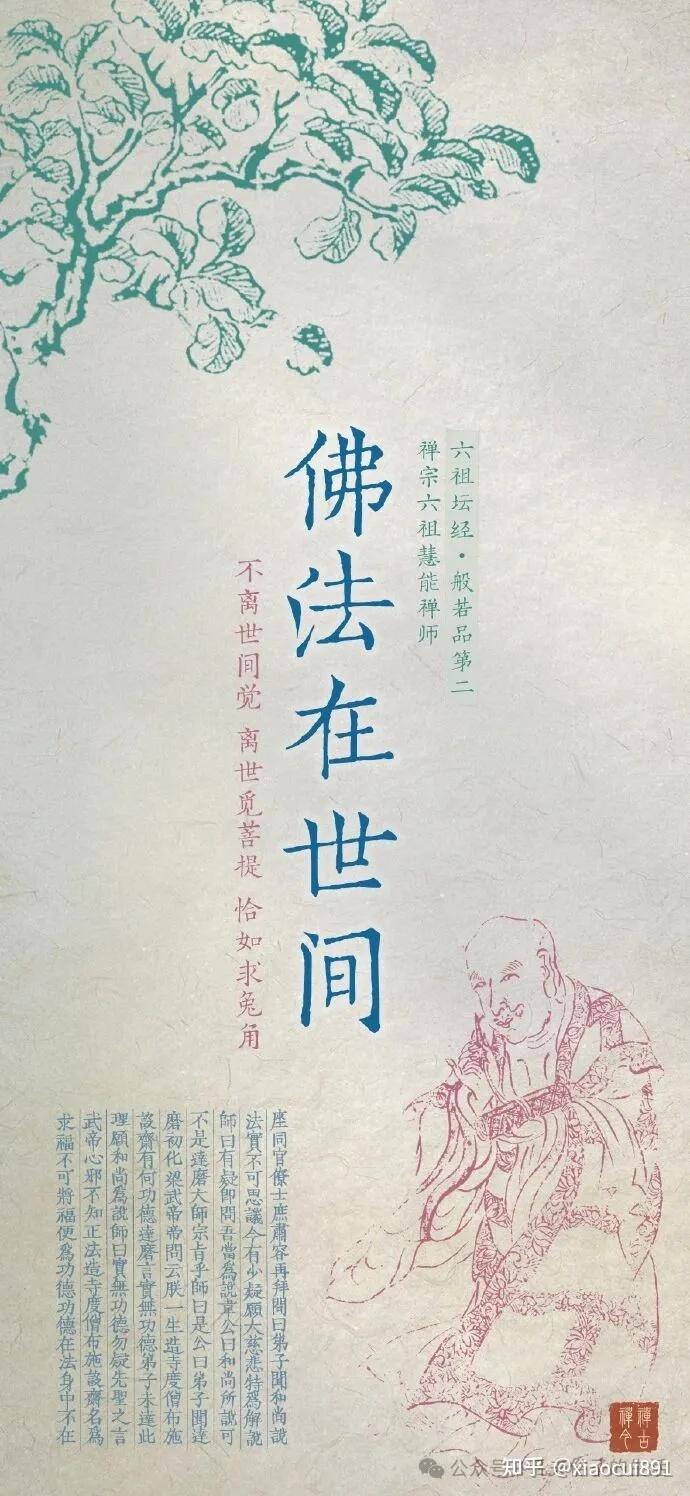 六祖坛经·般若品第二
禅宗六祖慧能禅师
佛法在世间
不离世间觉 离世觅菩提 恰如求兔角
座同官僚士庶肅容再拜問曰弟子聞和尚說
法實不可思議今有少疑願大慈悲特爲解說
師曰有疑即問吾當爲說韋公曰和尚所說可
不是達磨大師宗旨乎師曰是公曰弟子聞達
磨初化梁武帝帝問云朕一生造寺度僧布施
設齋有何功德達磨言實無功德弟子未達此
理願和尚爲說師曰實無功德勿疑先聖之言
武帝心邪不知正法造寺度僧布施設齋名爲
求福不可將福便爲功德功德在法身中不在
禪古
禪今
公众号
知乎 @xiaocui891